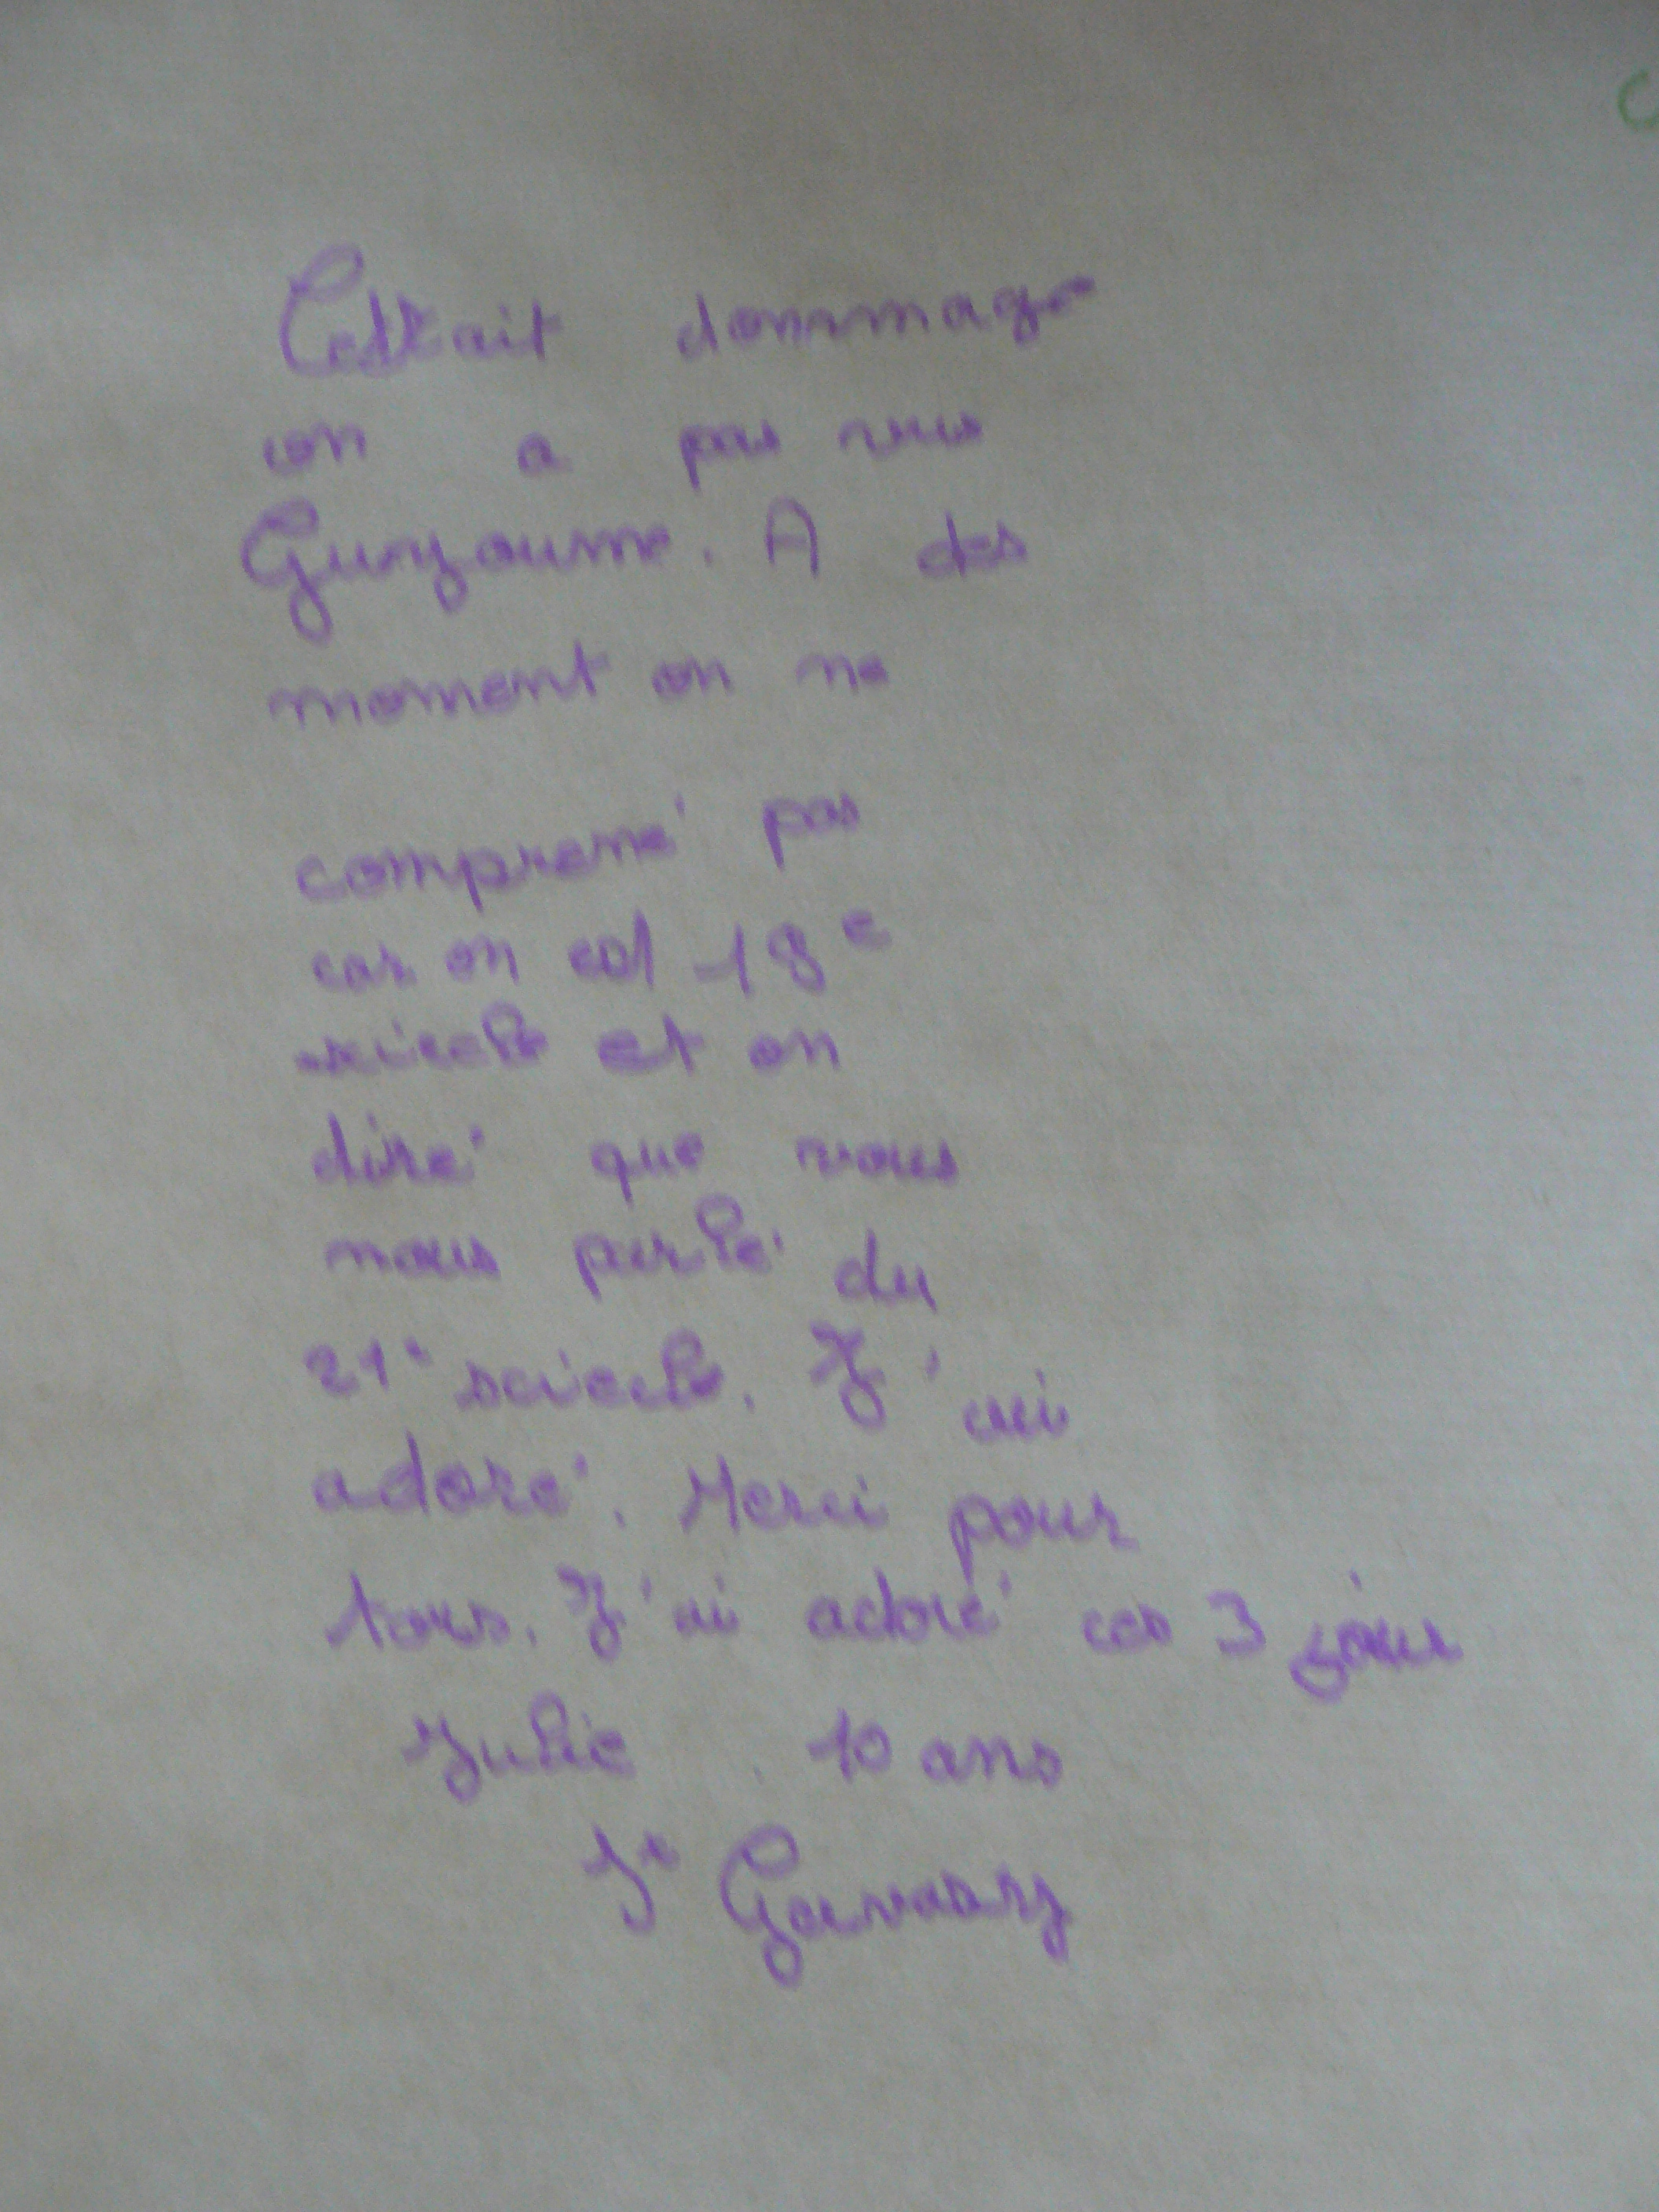 dommage
on a pas vus
Guyaume. A des
moment on ne
comprené pas
car on 18e
scicele et on
diré que vous
nous parlé du
21e scicele. J'ai
adoré. Merci pour
tous. J'ai adoré ces 3 jour
Julie 10 ans
St Gervasy